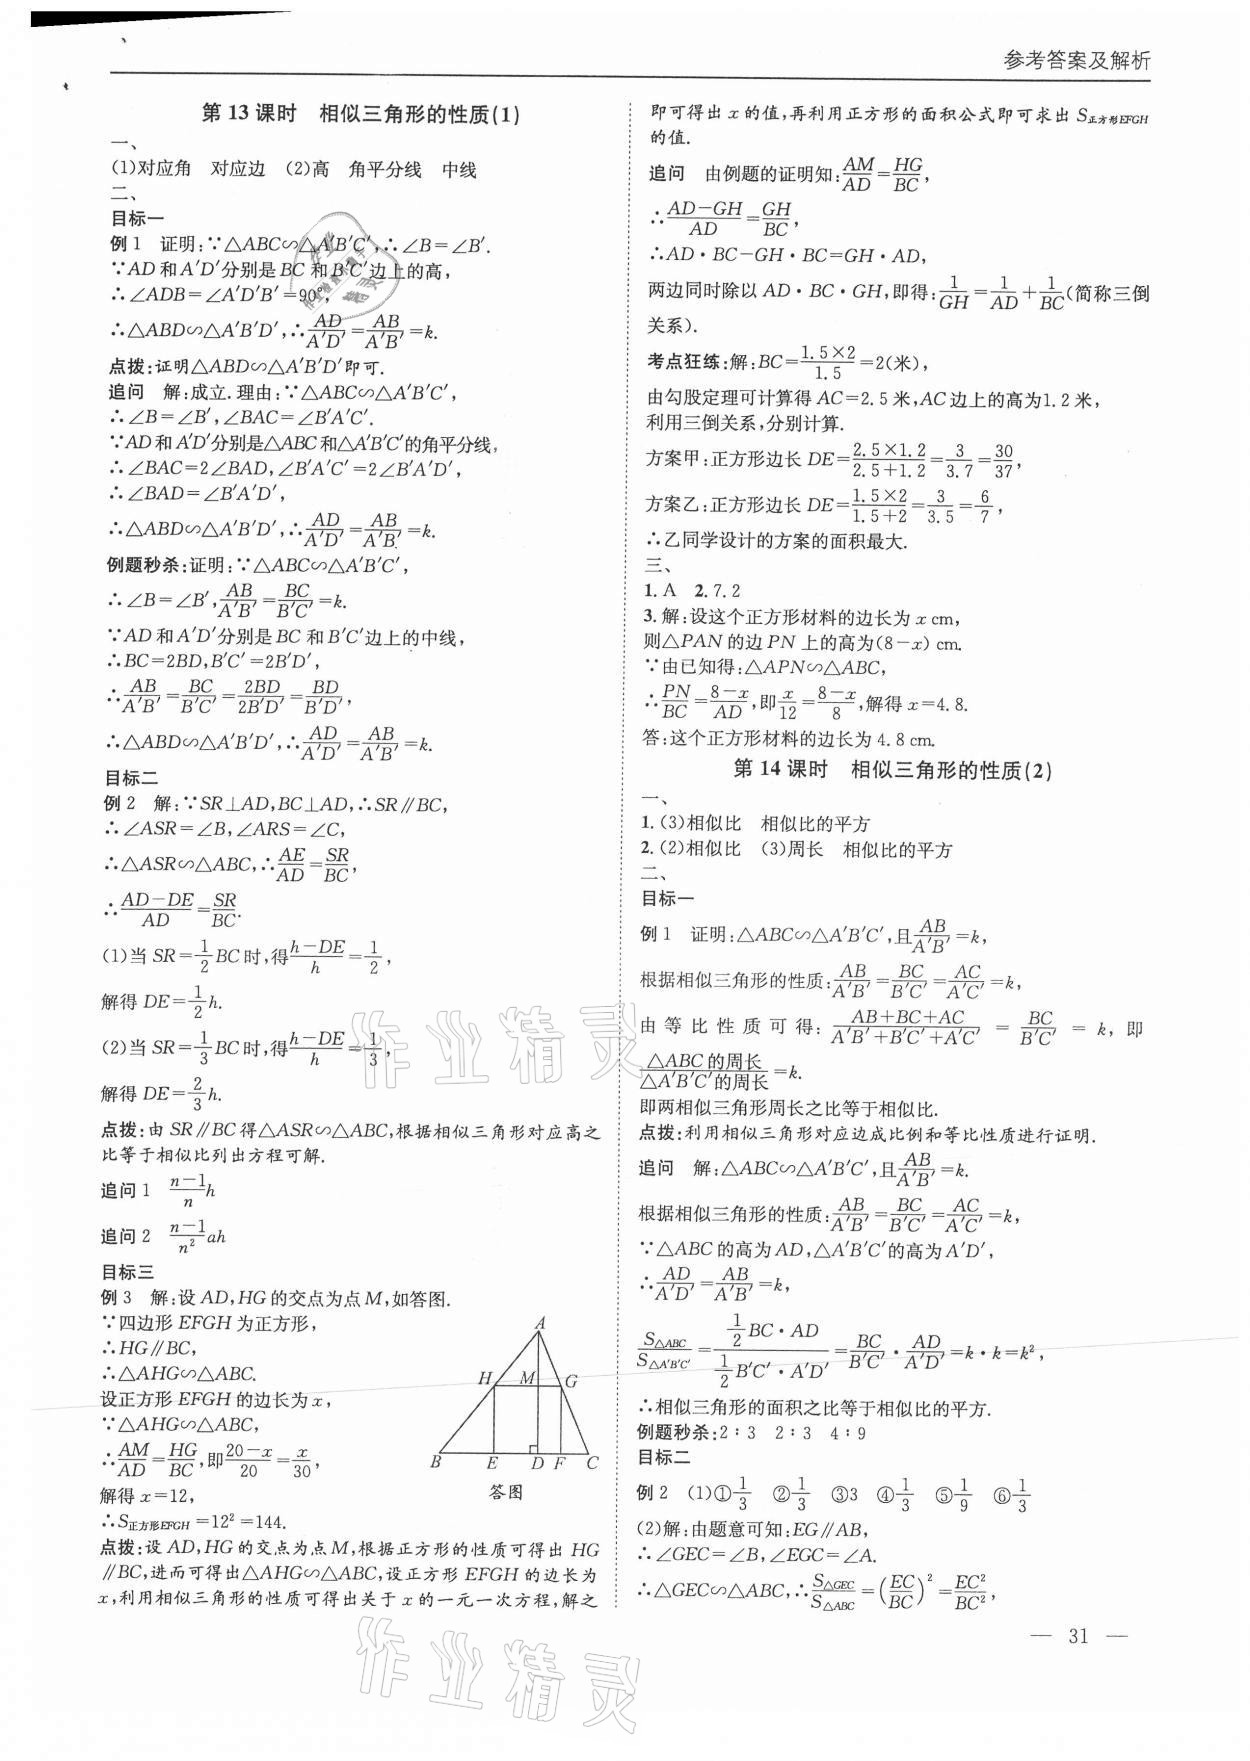 参考答案及解析
第13课时　相似三角形的性质(1)
一、
(1)对应角　对应边　(2)高　角平分线　中线
二、
目标一
例1　证明:∵△ABC∽△A′B′C′,∴∠B=∠B′.
∵AD和A′D′分别是BC和B′C′边上的高,
∴∠ADB=∠A′D′B′=90°,
∴△ABD∽△A′B′D′,∴AD/A′D′=AB/A′B′=k.
点拨:证明△ABD∽△A′B′D′即可.
追问　解:成立.理由:∵△ABC∽△A′B′C′,
∴∠B=∠B′,∠BAC=∠B′A′C′.
∵AD和A′D′分别是△ABC和△A′B′C′的角平分线,
∴∠BAC=2∠BAD,∠B′A′C′=2∠B′A′D′,
∴∠BAD=∠B′A′D′,
∴△ABD∽△A′B′D′,∴AD/A′D′=AB/A′B′=k.
例题秒杀:证明:∵△ABC∽△A′B′C′,
∴∠B=∠B′,AB/A′B′=BC/B′C′=k.
∵AD和A′D′分别是BC和B′C′边上的中线,
∴BC=2BD,B′C′=2B′D′,
∴AB/A′B′=BC/B′C′=2BD/2B′D′=BD/B′D′,
∴△ABD∽△A′B′D′,∴AD/A′D′=AB/A′B′=k.
目标二
例2　解:∵SR⊥AD,BC⊥AD,∴SR∥BC,
∴∠ASR=∠B,∠ARS=∠C,
∴△ASR∽△ABC,∴AE/AD=SR/BC,
∴(AD-DE)/AD=SR/BC.
(1)当SR=1/2BC时,得(h-DE)/h=1/2,
解得DE=1/2h.
(2)当SR=1/3BC时,得(h-DE)/h=1/3,
解得DE=2/3h.
点拨:由SR∥BC得△ASR∽△ABC,根据相似三角形对应高之
比等于相似比列出方程可解.
追问1　(n-1)/n h
追问2　(n-1)/n² ah
目标三
例3　解:设AD,HG的交点为点M,如答图.
∵四边形EFGH为正方形,
∴HG∥BC,
∴△AHG∽△ABC.
设正方形EFGH的边长为x,
∵△AHG∽△ABC,
∴AM/AD=HG/BC,即(20-x)/20=x/30,
解得x=12,
∴S正方形EFGH=12²=144.
A
H M G
B E D F C
答图
点拨:设AD,HG的交点为点M,根据正方形的性质可得出HG
∥BC,进而可得出△AHG∽△ABC,设正方形EFGH的边长为
x,利用相似三角形的性质可得出关于x的一元一次方程,解之
即可得出x的值,再利用正方形的面积公式即可求出S正方形EFGH
的值.
追问　由例题的证明知:AM/AD=HG/BC,
∴(AD-GH)/AD=GH/BC,
∴AD·BC-GH·BC=GH·AD,
两边同时除以AD·BC·GH,即得:1/GH=1/AD+1/BC(简称三倒
关系).
考点狂练:解:BC=1.5×2/1.5=2(米),
由勾股定理可计算得AC=2.5米,AC边上的高为1.2米,
利用三倒关系,分别计算.
方案甲:正方形边长DE=(2.5×1.2)/(2.5+1.2)=3/3.7=30/37,
方案乙:正方形边长DE=(1.5×2)/(1.5+2)=3/3.5=6/7,
∴乙同学设计的方案的面积最大.
三、
1.A　2.7.2
3.解:设这个正方形材料的边长为x cm,
则△PAN的边PN上的高为(8-x) cm.
∵由已知得:△APN∽△ABC,
∴PN/BC=(8-x)/AD,即x/12=(8-x)/8,解得x=4.8.
答:这个正方形材料的边长为4.8 cm.
第14课时　相似三角形的性质(2)
一、
1.(3)相似比　相似比的平方
2.(2)相似比　(3)周长　相似比的平方
二、
目标一
例1　证明:△ABC∽△A′B′C′,且AB/A′B′=k,
根据相似三角形的性质:AB/A′B′=BC/B′C′=AC/A′C′=k,
由等比性质可得:(AB+BC+AC)/(A′B′+B′C′+A′C′)=BC/B′C′=k,即
△ABC的周长/△A′B′C′的周长=k.
即两相似三角形周长之比等于相似比.
点拨:利用相似三角形对应边成比例和等比性质进行证明.
追问　解:△ABC∽△A′B′C′,且AB/A′B′=k.
根据相似三角形的性质:AB/A′B′=BC/B′C′=AC/A′C′=k,
∵△ABC的高为AD,△A′B′C′的高为A′D′,
∴AD/A′D′=AB/A′B′=k,
S△ABC/S△A′B′C′=(1/2BC·AD)/(1/2B′C′·A′D′)=BC/B′C′·AD/A′D′=k·k=k²,
∴相似三角形的面积之比等于相似比的平方.
例题秒杀:2∶3　2∶3　4∶9
目标二
例2　(1)①1/3　②1/3　③3　④1/3　⑤1/9　⑥1/3
(2)解:由题意可知:EG∥AB,
∴∠GEC=∠B,∠EGC=∠A.
∴△GEC∽△ABC,∴S△GEC/S△ABC=(EC/BC)²=EC²/BC²,
— 31 —
作业精灵
作业精灵